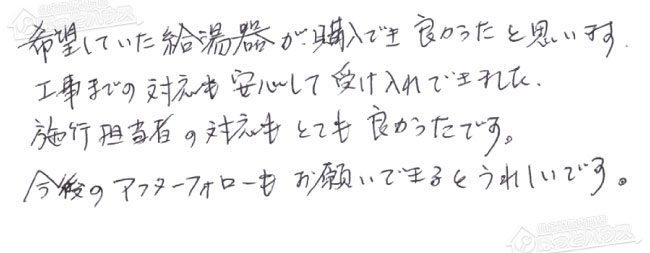 希望していた給湯器が購入でき良かったと思います.
工事までの対応も安心して受け入れできました.
施行担当者の対応もとても良かったです。
今後のアフターフォローもお願いできるとうれしいです。